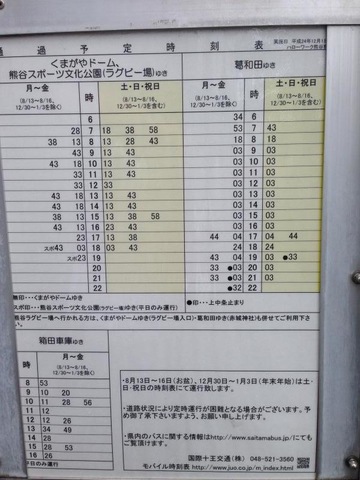 通過予定時刻表
実施日 平成24年12月1
くまがやドーム、
熊谷スポーツ文化公園(ラグビー場)ゆき
葛和田ゆき
月～金 時 土・日・祝日
(8/13～8/16、12/30～1/3を除く) (8/13～8/16、12/30～1/3を含む)
月～金 時 土・日・祝日
(8/13～8/16、12/30～1/3を除く) (8/13～8/16、12/30～1/3を含む)
6 34 6
28 7 18 38 58 53 7 43
38 13 8 13 28 43 18 8 18
43 9 13 43 03 9 03
43 18 10 13 43 03 10 03
43 18 11 13 43 03 11 03
33 12 33 03 12 03
43 18 13 13 43 03 13 03
43 18 14 13 43 03 14 03
38 13 15 13 38 58 03 15 03
23 16 13 43 03 16 03
23 17 13 38 44 04 17 04 44
スポ43 03 18 03 24 18 24
スポ23 19 43 04 19 03 ●33
20 33 ●03 20 03
21 33 ●03 21 03
22 ●32 22
無印・・・くまがやドームゆき
スポ印・・・熊谷スポーツ文化公園(ラグビー場)ゆき(平日のみ運行)
●印・・・上中条止まり
熊谷ラグビー場へ行かれる方は、くまがやドームゆき(ラグビー場入口)・葛和田ゆき(赤城神社)も併せてご利用下さい。
箱田車庫ゆき
月～金
(8/13～8/16、12/30～1/3を除く)
8 53
9 10 20
10 11 28 56
11 26
12 26
13 34 49
14
15 28
16 26
平日のみ運行
・8月13日～16日(お盆)、12月30日～1月3日(年末年始)は土・日・祝日の時刻表にて運行致します。
・道路状況により定時運行が困難となる場合がございます。予め御了承下さいますよう、お願い申し上げます。
・県内のバスに関する情報はhttp://www.saitamabus.jp/にてもご覧頂けます。
国際十王交通(株) 048-521-3560
モバイル時刻表 http://www.juo.co.jp/m_index.html